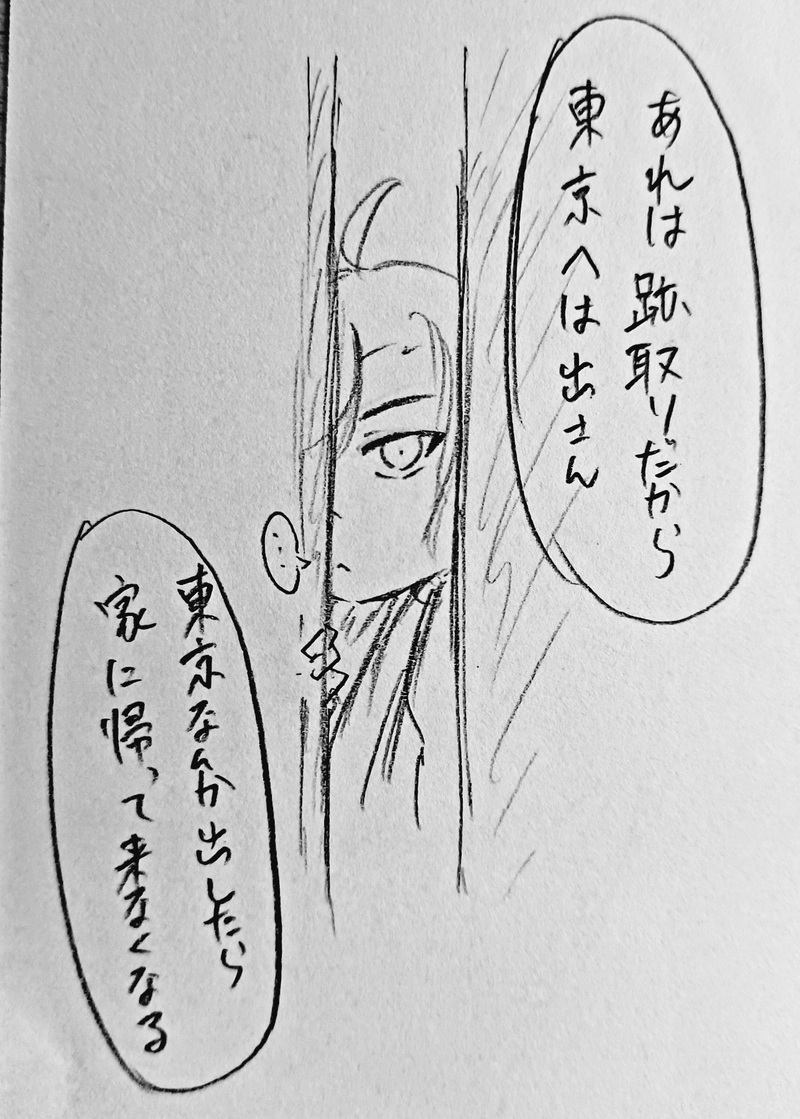 あれは跡取りだから
東京へは出さん
…
東京なんか出したら
家に帰って来なくなる